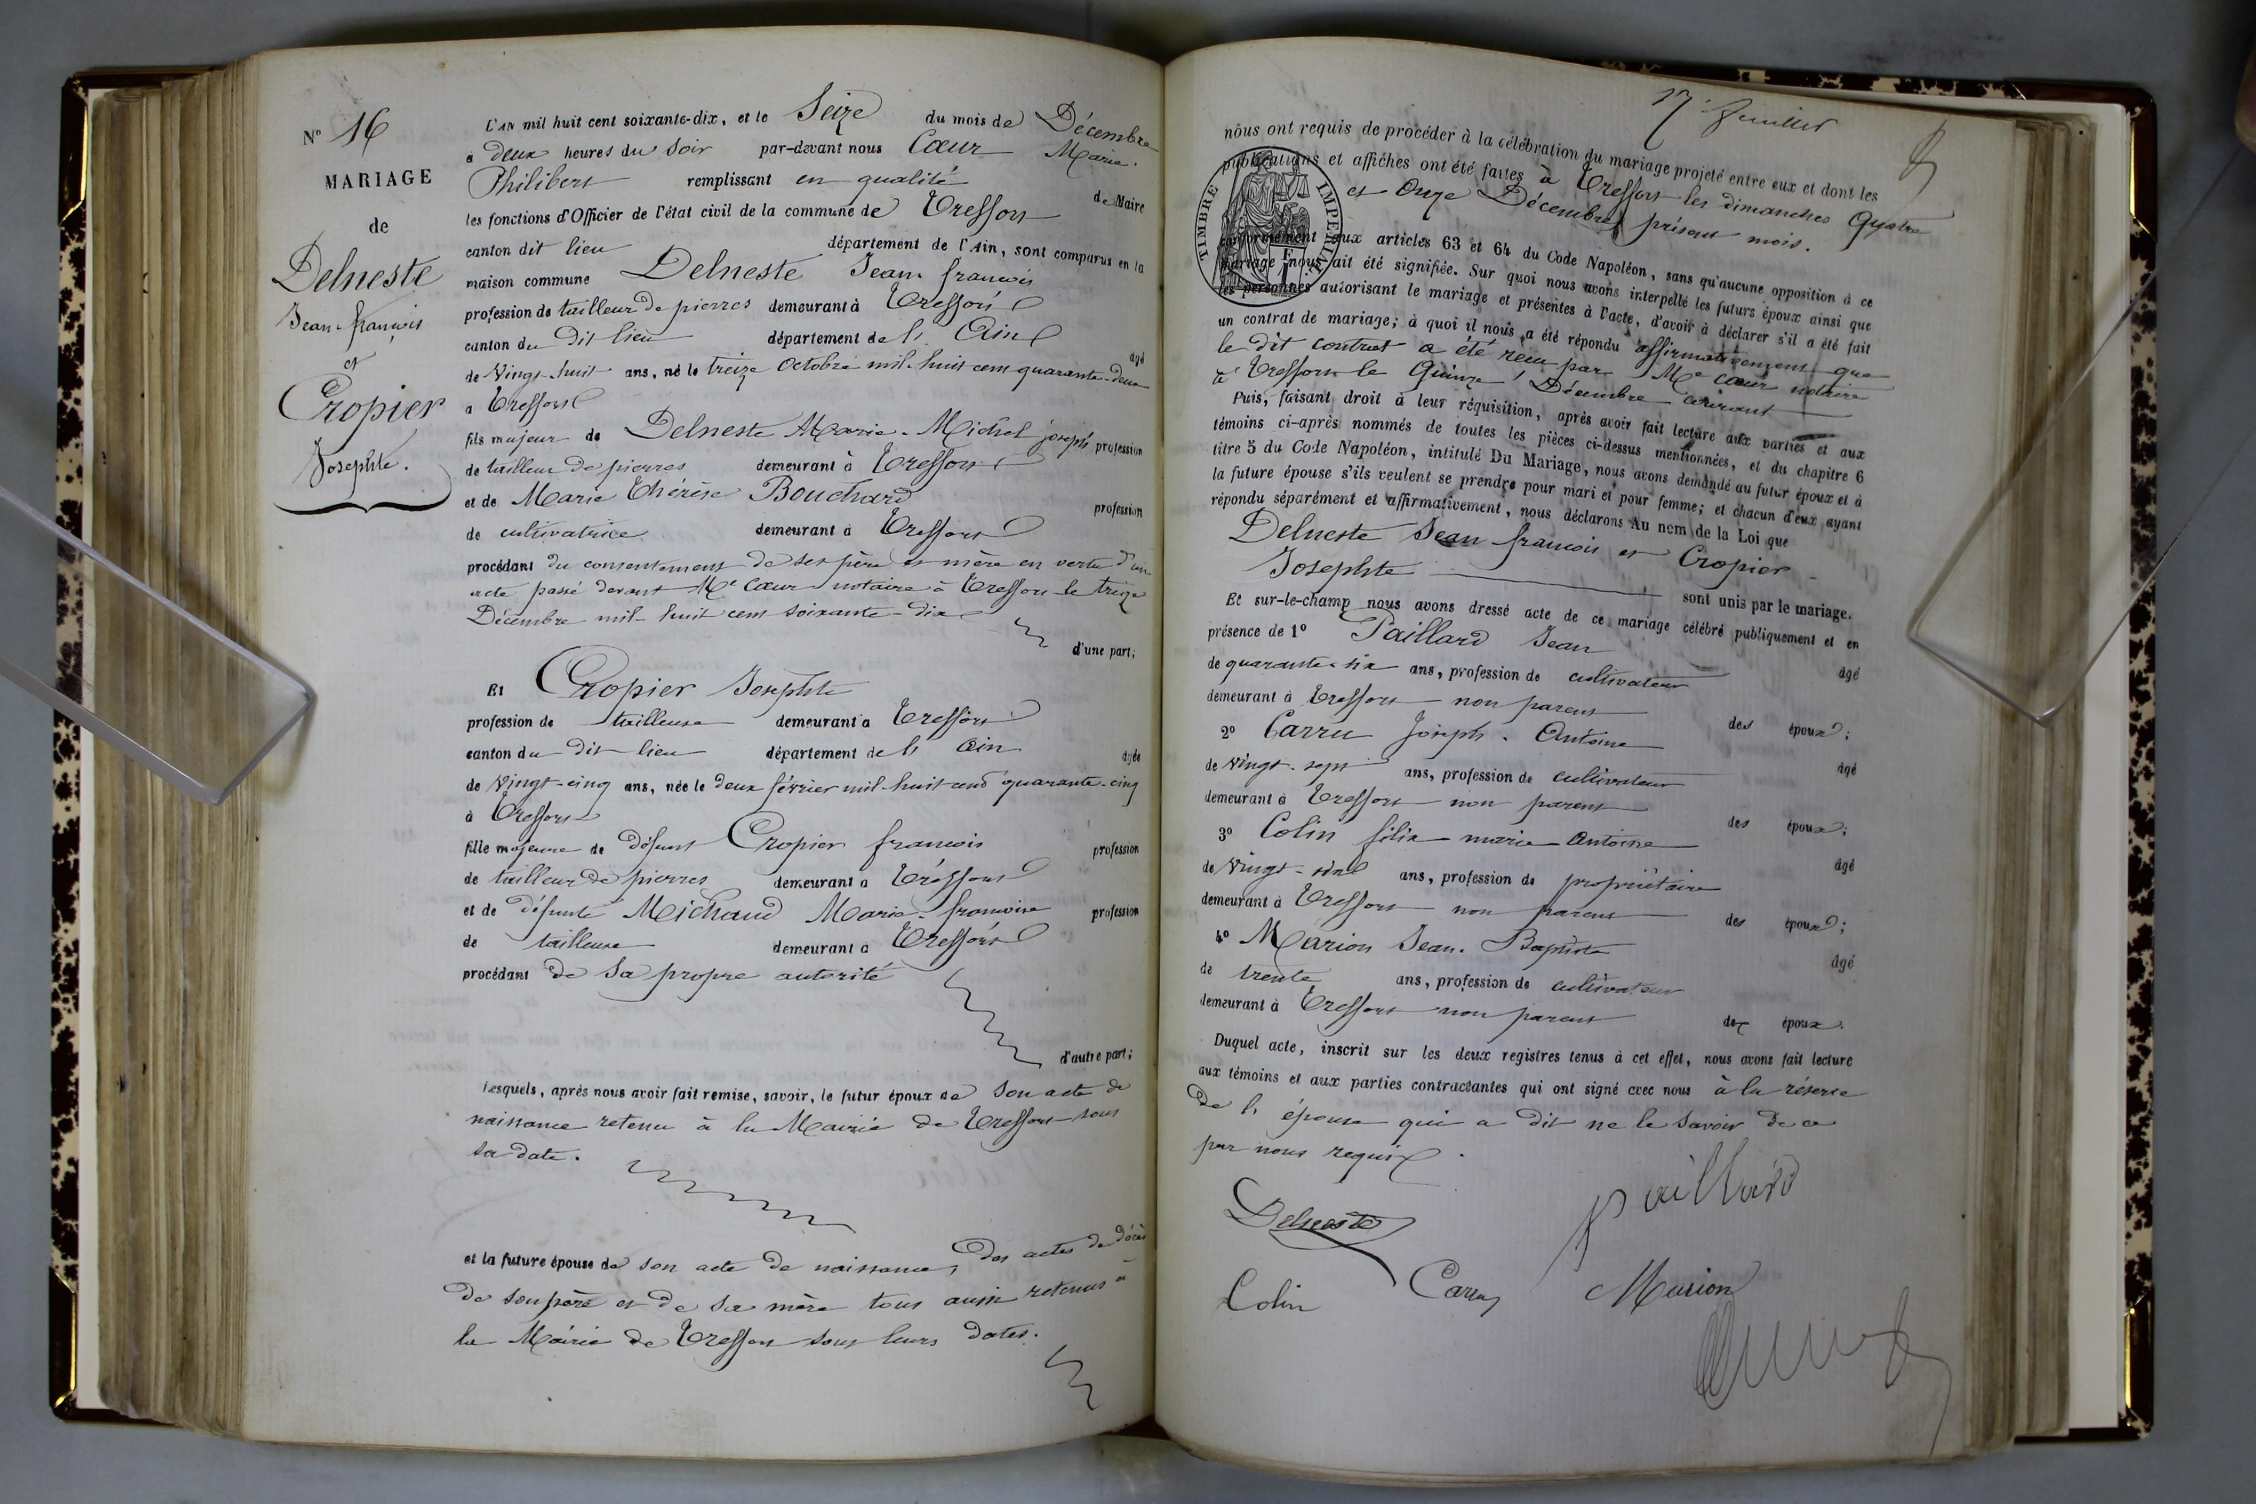 N° 16
MARIAGE
de
Delneste
Jean-françois
et
Cropier
Josephte.
L'AN mil huit cent soixante-dix, et le Seize du mois de Décembre
à deux heures du Soir par-devant nous Cœur Marie.
Philibert remplissant en qualité de Maire
les fonctions d'Officier de l'état civil de la commune de Treffort
canton dit lieu département de l'Ain, sont comparus en la
maison commune Delneste Jean françois
profession de tailleur de pierres demeurant à Treffort
canton du dit lieu département de l'Ain âgé
de Vingt-huit ans, né le treize Octobre mil-huit cent quarante-deux
à Treffort
fils majeur de Delneste Marie-Michel joseph profession
de tailleur de pierres demeurant à Treffort
et de Marie Thérèse Bouchard profession
de cultivatrice demeurant à Treffort
procédant du consentement de ses père et mère en vertu d'un
acte passé devant Me Cœur notaire à Treffort le treize
Décembre mil-huit cent soixante-dix
d'une part;
Et Cropier Josephte
profession de tailleuse demeurant à Treffort
canton du dit lieu département de l'Ain âgée
de Vingt-cinq ans, née le deux février mil-huit cent quarante-cinq
à Treffort
fille majeure de défunt Cropier françois profession
de tailleur de pierres demeurant à Treffort
et de défunte Michaud Marie-françoise profession
de tailleuse demeurant à Treffort
procédant de sa propre autorité
d'autre part;
Lesquels, après nous avoir fait remise, savoir, le futur époux de son acte de
naissance retenu à la Mairie de Treffort sous
sa date.
et la future épouse de son acte de naissance, des actes de décès
de son père et de sa mère tous aussi retenus à
la Mairie de Treffort sous leurs dates.
17e feuillet
nous ont requis de procéder à la célébration du mariage projeté entre eux et dont les
publications et affiches ont été faites à Treffort les dimanches Quatre
et Onze Décembre présent mois.
TIMBRE IMPERIAL
conformément aux articles 63 et 64 du Code Napoléon, sans qu'aucune opposition à ce
mariage nous ait été signifiée. Sur quoi nous avons interpellé les futurs époux ainsi que
les personnes autorisant le mariage et présentes à l'acte, d'avoir à déclarer s'il a été fait
un contrat de mariage; à quoi il nous a été répondu affirmativement que
le dit contrat a été reçu par Me Cœur notaire
à Treffort le Quinze Décembre courant
Puis, faisant droit à leur réquisition, après avoir fait lecture aux parties et aux
témoins ci-après nommés de toutes les pièces ci-dessus mentionnées, et du chapitre 6
titre 5 du Code Napoléon, intitulé Du Mariage, nous avons demandé au futur époux et à
la future épouse s'ils veulent se prendre pour mari et pour femme; et chacun d'eux ayant
répondu séparément et affirmativement, nous déclarons Au nom de la Loi que
Delneste Jean françois et Cropier
Josephte sont unis par le mariage.
Et sur-le-champ nous avons dressé acte de ce mariage célébré publiquement et en
présence de 1° Paillard Jean âgé
de quarante-six ans, profession de cultivateur
demeurant à Treffort non parent des époux;
2° Carru Joseph-Antoine âgé
de Vingt-sept ans, profession de cultivateur
demeurant à Treffort non parent des époux;
3° Colin félix marie Antoine âgé
de Vingt- ans, profession de propriétaire
demeurant à Treffort non parent des époux;
4° Marion Jean-Baptiste âgé
de trente ans, profession de cultivateur
demeurant à Treffort non parent des époux.
Duquel acte, inscrit sur les deux registres tenus à cet effet, nous avons fait lecture
aux témoins et aux parties contractantes qui ont signé avec nous à la réserve
de l'épouse qui a dit ne le savoir de ce
par nous requis.
Delneste
Paillard
Colin
Carru
Marion